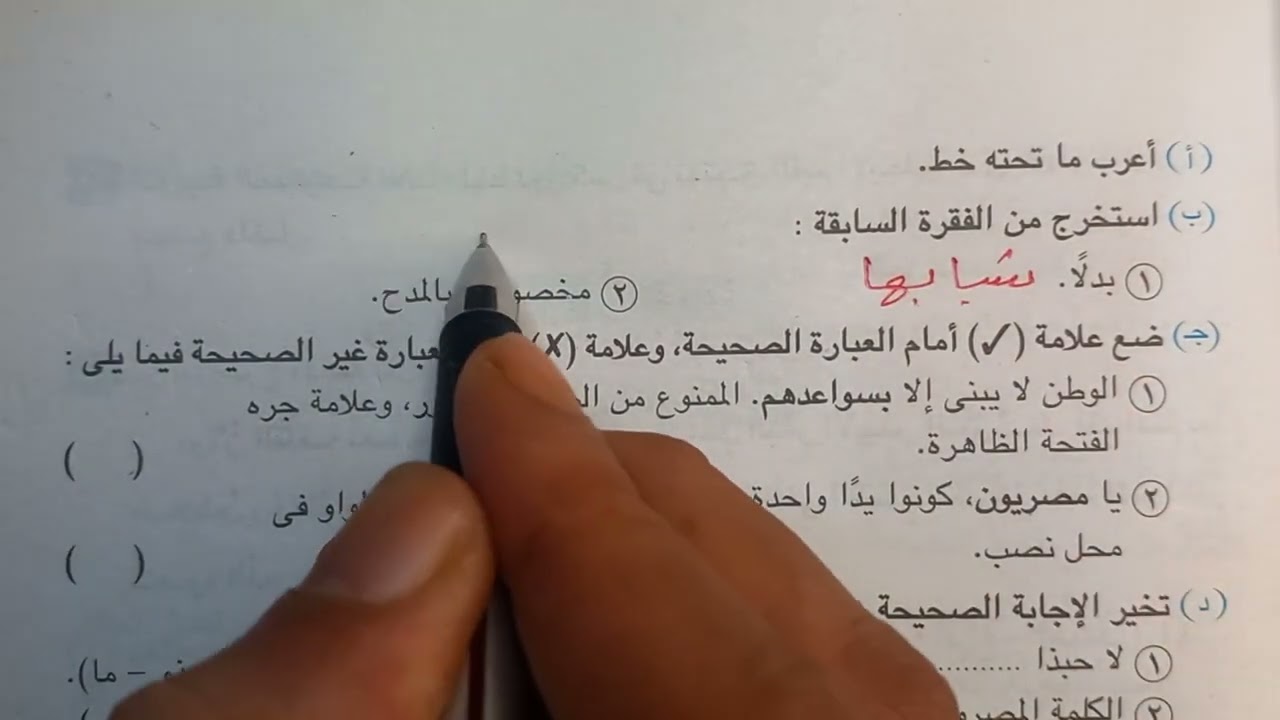 (أ) أعرب ما تحته خط.
(ب) استخرج من الفقرة السابقة :
١ بدلًا. شبابها ٢ بالمدح.
(جـ) ضع علامة (✓) أمام العبارة الصحيحة، وعلامة (✗) غير الصحيحة فيما يلى :
١ الوطن لا يبنى إلا بسواعدهم. الممنوع من وعلامة جره
الفتحة الظاهرة. ( )
٢ يا مصريون، كونوا يدًا واحدة فى
محل نصب. ( )
(د) تخير الإجابة الصحيحة
١ لا حبذا .......... – ما).
٢ الكلمة